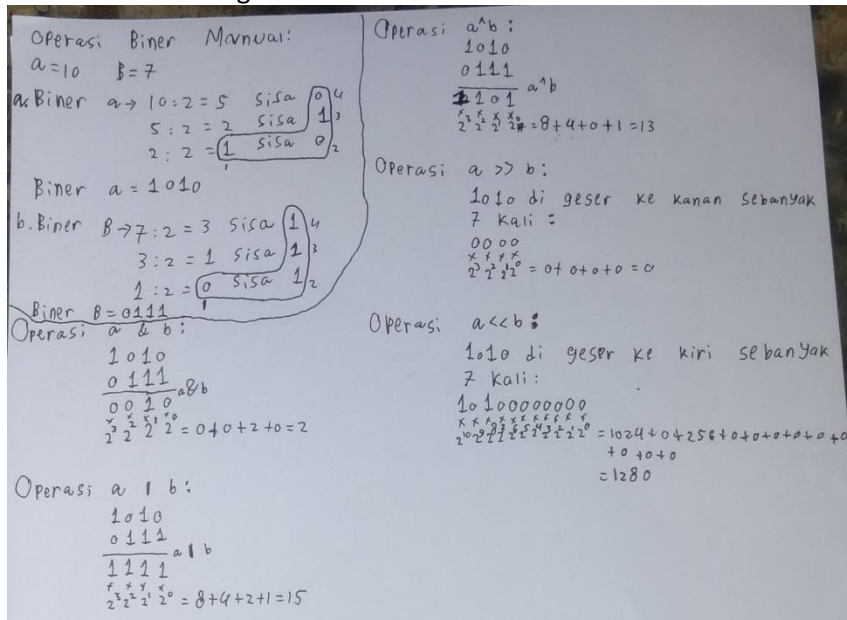 Operasi Biner Manual:
a = 10 B = 7
a. Biner a → 10 : 2 = 5 sisa 0 4
5 : 2 = 2 sisa 1 3
2 : 2 = 1 sisa 0 2
1
Biner a = 1010
b. Biner B → 7 : 2 = 3 sisa 1 4
3 : 2 = 1 sisa 1 3
1 : 2 = 0 sisa 1 2
1
Biner B = 0111
Operasi a & b :
1010
0111
a&b
0010
x x x x
2³ 2² 2¹ 2⁰ = 0+0+2+0 = 2
Operasi a | b :
1010
0111
a | b
1111
x x x x
2³ 2² 2¹ 2⁰ = 8+4+2+1 = 15
Operasi a^b :
1010
0111
a^b
1101
x x x x
2³ 2² 2¹ 2⁰ = 8+4+0+1 = 13
Operasi a >> b :
1010 di geser ke kanan sebanyak
7 kali :
0000
x x x x
2³ 2² 2¹ 2⁰ = 0+0+0+0 = 0
Operasi a<<b :
1010 di geser ke kiri sebanyak
7 kali :
10100000000
x x x x x x x x x x x
2¹⁰ 2⁹ 2⁸ 2⁷ 2⁶ 2⁵ 2⁴ 2³ 2² 2¹ 2⁰ = 1024+0+256+0+0+0+0+0+0
+0+0
= 1280